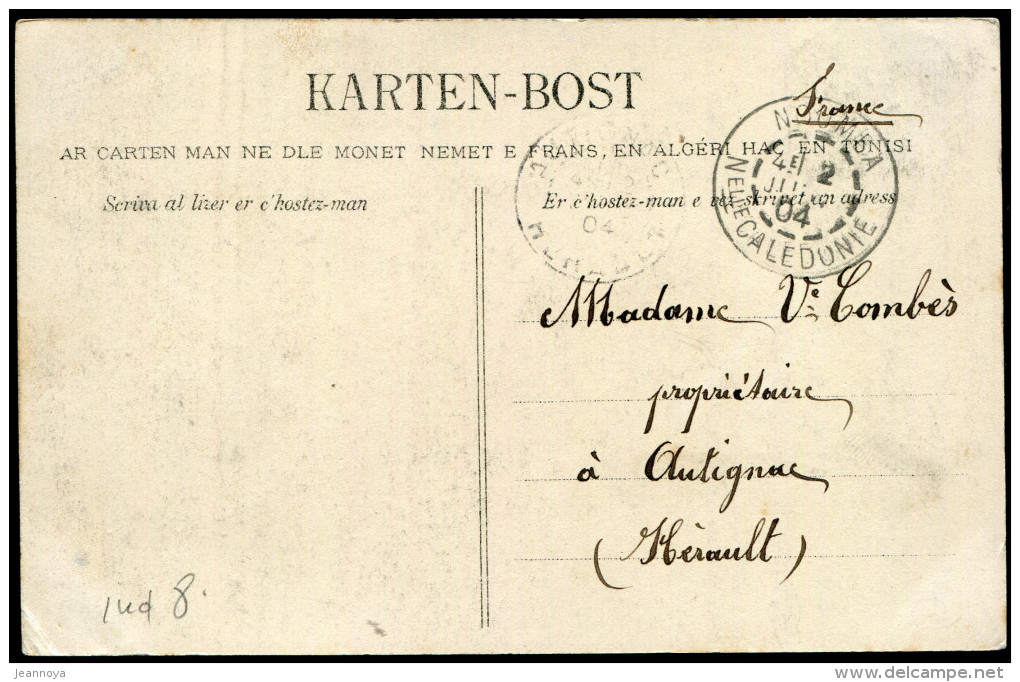 France
KARTEN-BOST
AR CARTEN MAN NE DLE MONET NEMET E FRANS, EN ALGÉRI HAC EN TUNISI
Scriva al lizer er c'hostez-man
Er c'hostez-man e vez skrivet an adress
NOUMEA
4E
2
04
NELLE CALEDONIE
04
Madame Ve Combès
propriétaire
à Autignac
(Hérault)
8.
jeannoya
delcampe.net